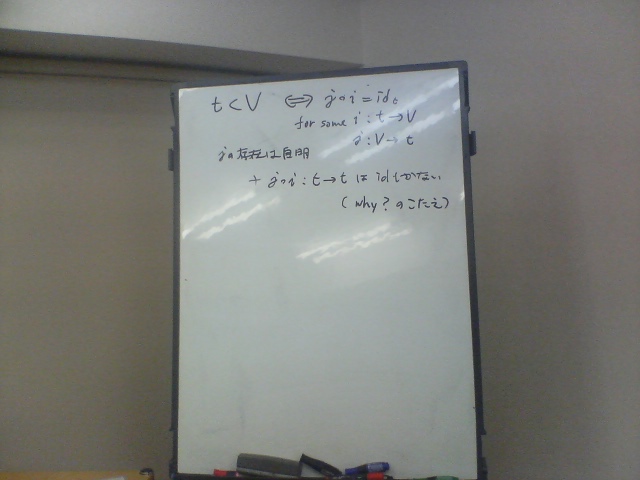 t < V ⇔ j∘i = id_t
for some i : t → V
j : V → t
jの存在は自明
+ j∘i : t → t は idしかない
(why? のこたえ)